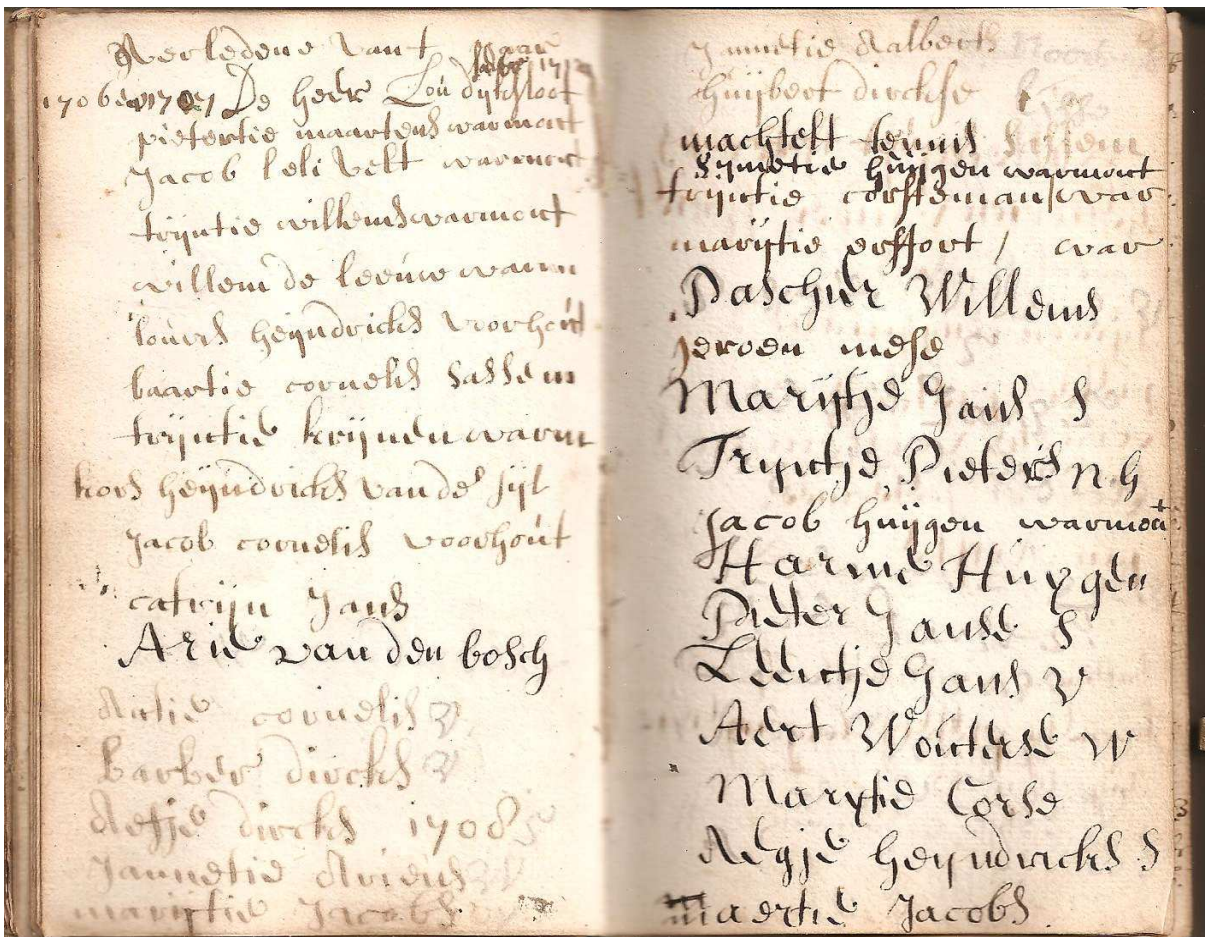 overledene vant Jaar
1706 en 1707 De heer Lou dyckfloot
pietertie maartens warmont
Jacob leli velt warmont
trijntie willems warmont
willem de leeuw warm
lourus heijndricks voorhout
baartie cornelis Sassem
trijntie krijnen warm
kors heijndricks van de sijl
Jacob cornelis voorhout
catrijn Jans
Arie van den bosch
Aeltie cornelis W
barber dircks W
Aeltje dircks 1708 S
Jannetie Ariens W
marijtie Jacobs
Jannetie Aalberts Noort
Huijbert dirckse
machtelt teunis Sassem
Sijmetie huijgen warmont
trijntie corsseman / war
marijtie erffort / war
Paschier Willems
Jeroen mese
Marijtje Jans S
Trijntje Pieters N h
Jacob huijgen warmont
Harme Huygen
Pieter Janse S
Leentje Jans V
Aert Wouterse W
Marytie Corse
Aegje heijndricks S
maertie Jacobs